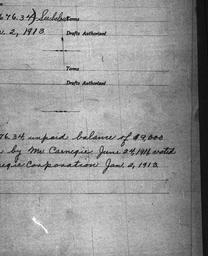 676.34) Sudbu Terms
n. 2, 1913.
Drafts Authorized
Terms
Drafts Authorized
76.34 unpaid balance of $9,000
by Mr Carnegie June 24, 1911 voted
negie Corporation Jan. 2, 1913.